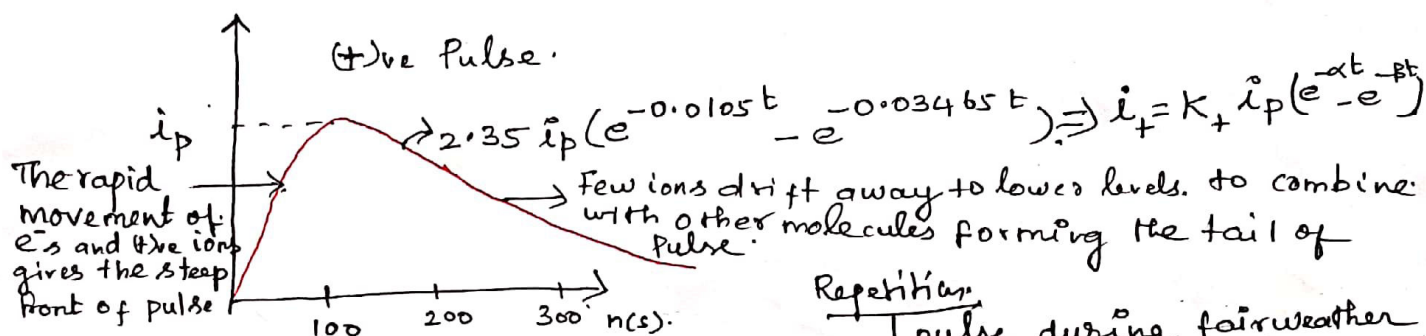 (+)ve Pulse.
ip
2.35 ip (e^-0.0105t - e^-0.03465t) ⇒ i+ = K+ ip (e^-αt - e^-βt)
The rapid movement of e-s and (+)ve ions gives the steep front of pulse
Few ions drift away to lower levels. to combine
with other molecules forming the tail of
Pulse.
100 200 300 n(s).
Repetition
1 pulse during fairweather